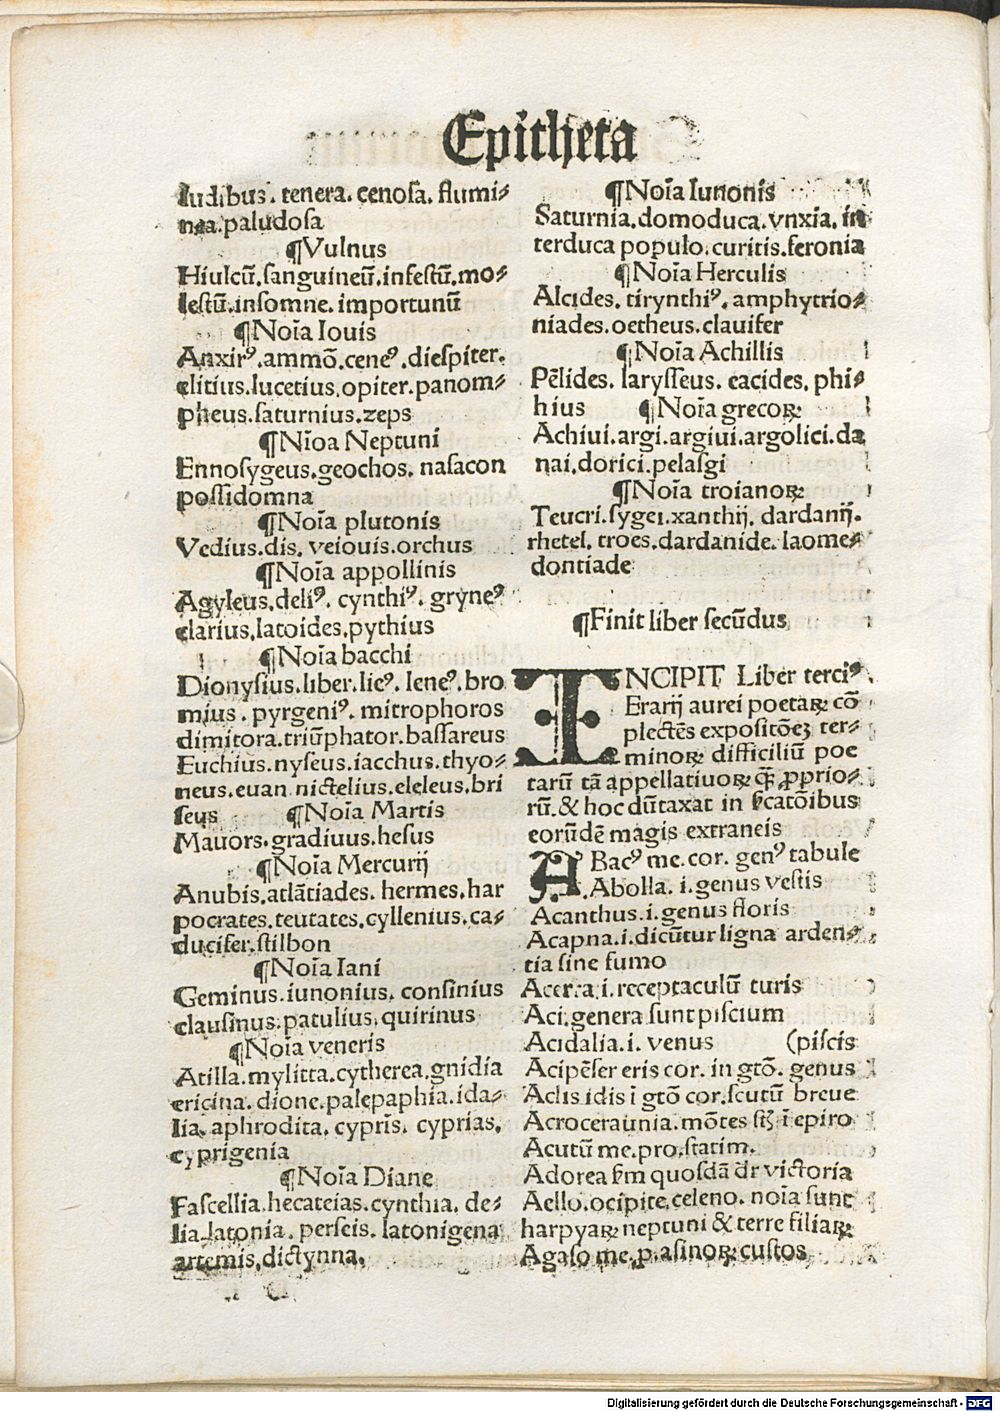 Epitheta
ludibus. tenera. cenosa. flumi⸗
nea. paludosa
¶Vulnus
Hiulcū. sanguineū. infestū. mo⸗
lestū. insomne. importunū
¶Noīa Iouis
Anxirꝰ. ammō. ceneꝰ. diespiter.
elitius. lucetius. opiter. panom⸗
pheus. saturnius. zeps
¶Nīoa Neptuni
Ennosygeus. geochos. nasacon
possidomna
¶Noīa plutonis
Vedius. dis. veiouis. orchus
¶Noīa appollinis
Agyleus. deliꝰ. cynthiꝰ. gryneꝰ
clarius. latoides. pythius
¶Noīa bacchi
Dionysius. liber. lieꝰ. leneꝰ. bro
mius. pyrgeniꝰ. mitrophoros
dimitora. triūphator. bassareus
Euchius. nyseus. iacchus. thyo⸗
neus. euan nictelius. eleleus. bri
seus ¶Noīa Martis
Mauors. gradiuus. hesus
¶Noīa Mercurij
Anubis. atlātiades. hermes. har
pocrates. teutates. cyllenius. ca⸗
ducifer. stilbon
¶Noīa Iani
Geminus. iunonius. consinius
clausinus. patulius. quirinus
¶Noīa veneris
Atilla. mylitta. cytherea. gnidia
ericina. dione. palepaphia. ida⸗
lia. aphrodita. cypris. cyprias.
cyprigenia
¶Noīa Diane
Fascellia. hecateias. cynthia. de⸗
lia. latonia. perseis. latonigena
artemis. dictynna.
¶Noīa Iunonis
Saturnia. domoduca. vnxia. in
terduca populo. curitis. feronia
¶Noīa Herculis
Alcides. tirynthiꝰ. amphytrio⸗
niades. oetheus. clauifer
¶Noīa Achillis
Pēlides. larysseus. eacides. phi⸗
hius ¶Noīa grecoꝝ
Achiui. argi. argiui. argolici. da
nai. dorici. pelasgi
¶Noīa troianoꝝ
Teucri. sygei. xanthij. dardanij.
rhetel. troes. dardanide. laome⸗
dontiade
¶Finit liber secūdus
INCIPIT Liber terciꝰ
Erarij aurei poetaꝝ cō
plectēs expositōeȝ ter⸗
minoꝝ difficiliū poe
tarū tā appellatiuoꝝ qꝫ̄ ꝓprio⸗
rū. & hoc dūtaxat in ẜcatōibus
eorūdē magis extraneis
ABacꝰ me. cor. genꝰ tabule
Abolla. i. genus vestis
Acanthus. i. genus floris
Acapna. i. dicūtur ligna arden⸗
tia sine fumo
Acerra. i. receptaculū turis
Aci. genera sunt piscium
Acidalia. i. venus (piscis
Acipēser eris cor. in gtō. genus
Aclis idis ī gtō cor. scutū breue
Acroceraunia. mōtes sꝫ̄ ī epiro
Acutū me. pro. statim.
Adorea ẜm quosdā dr̄ victoria
Aello. ocipite. celeno. noīa sunt
harpyaꝝ neptuni & terre filiaꝝ
Agaso me. p. asinoꝝ custos
Digitalisierung gefördert durch die Deutsche Forschungsgemeinschaft - DFG